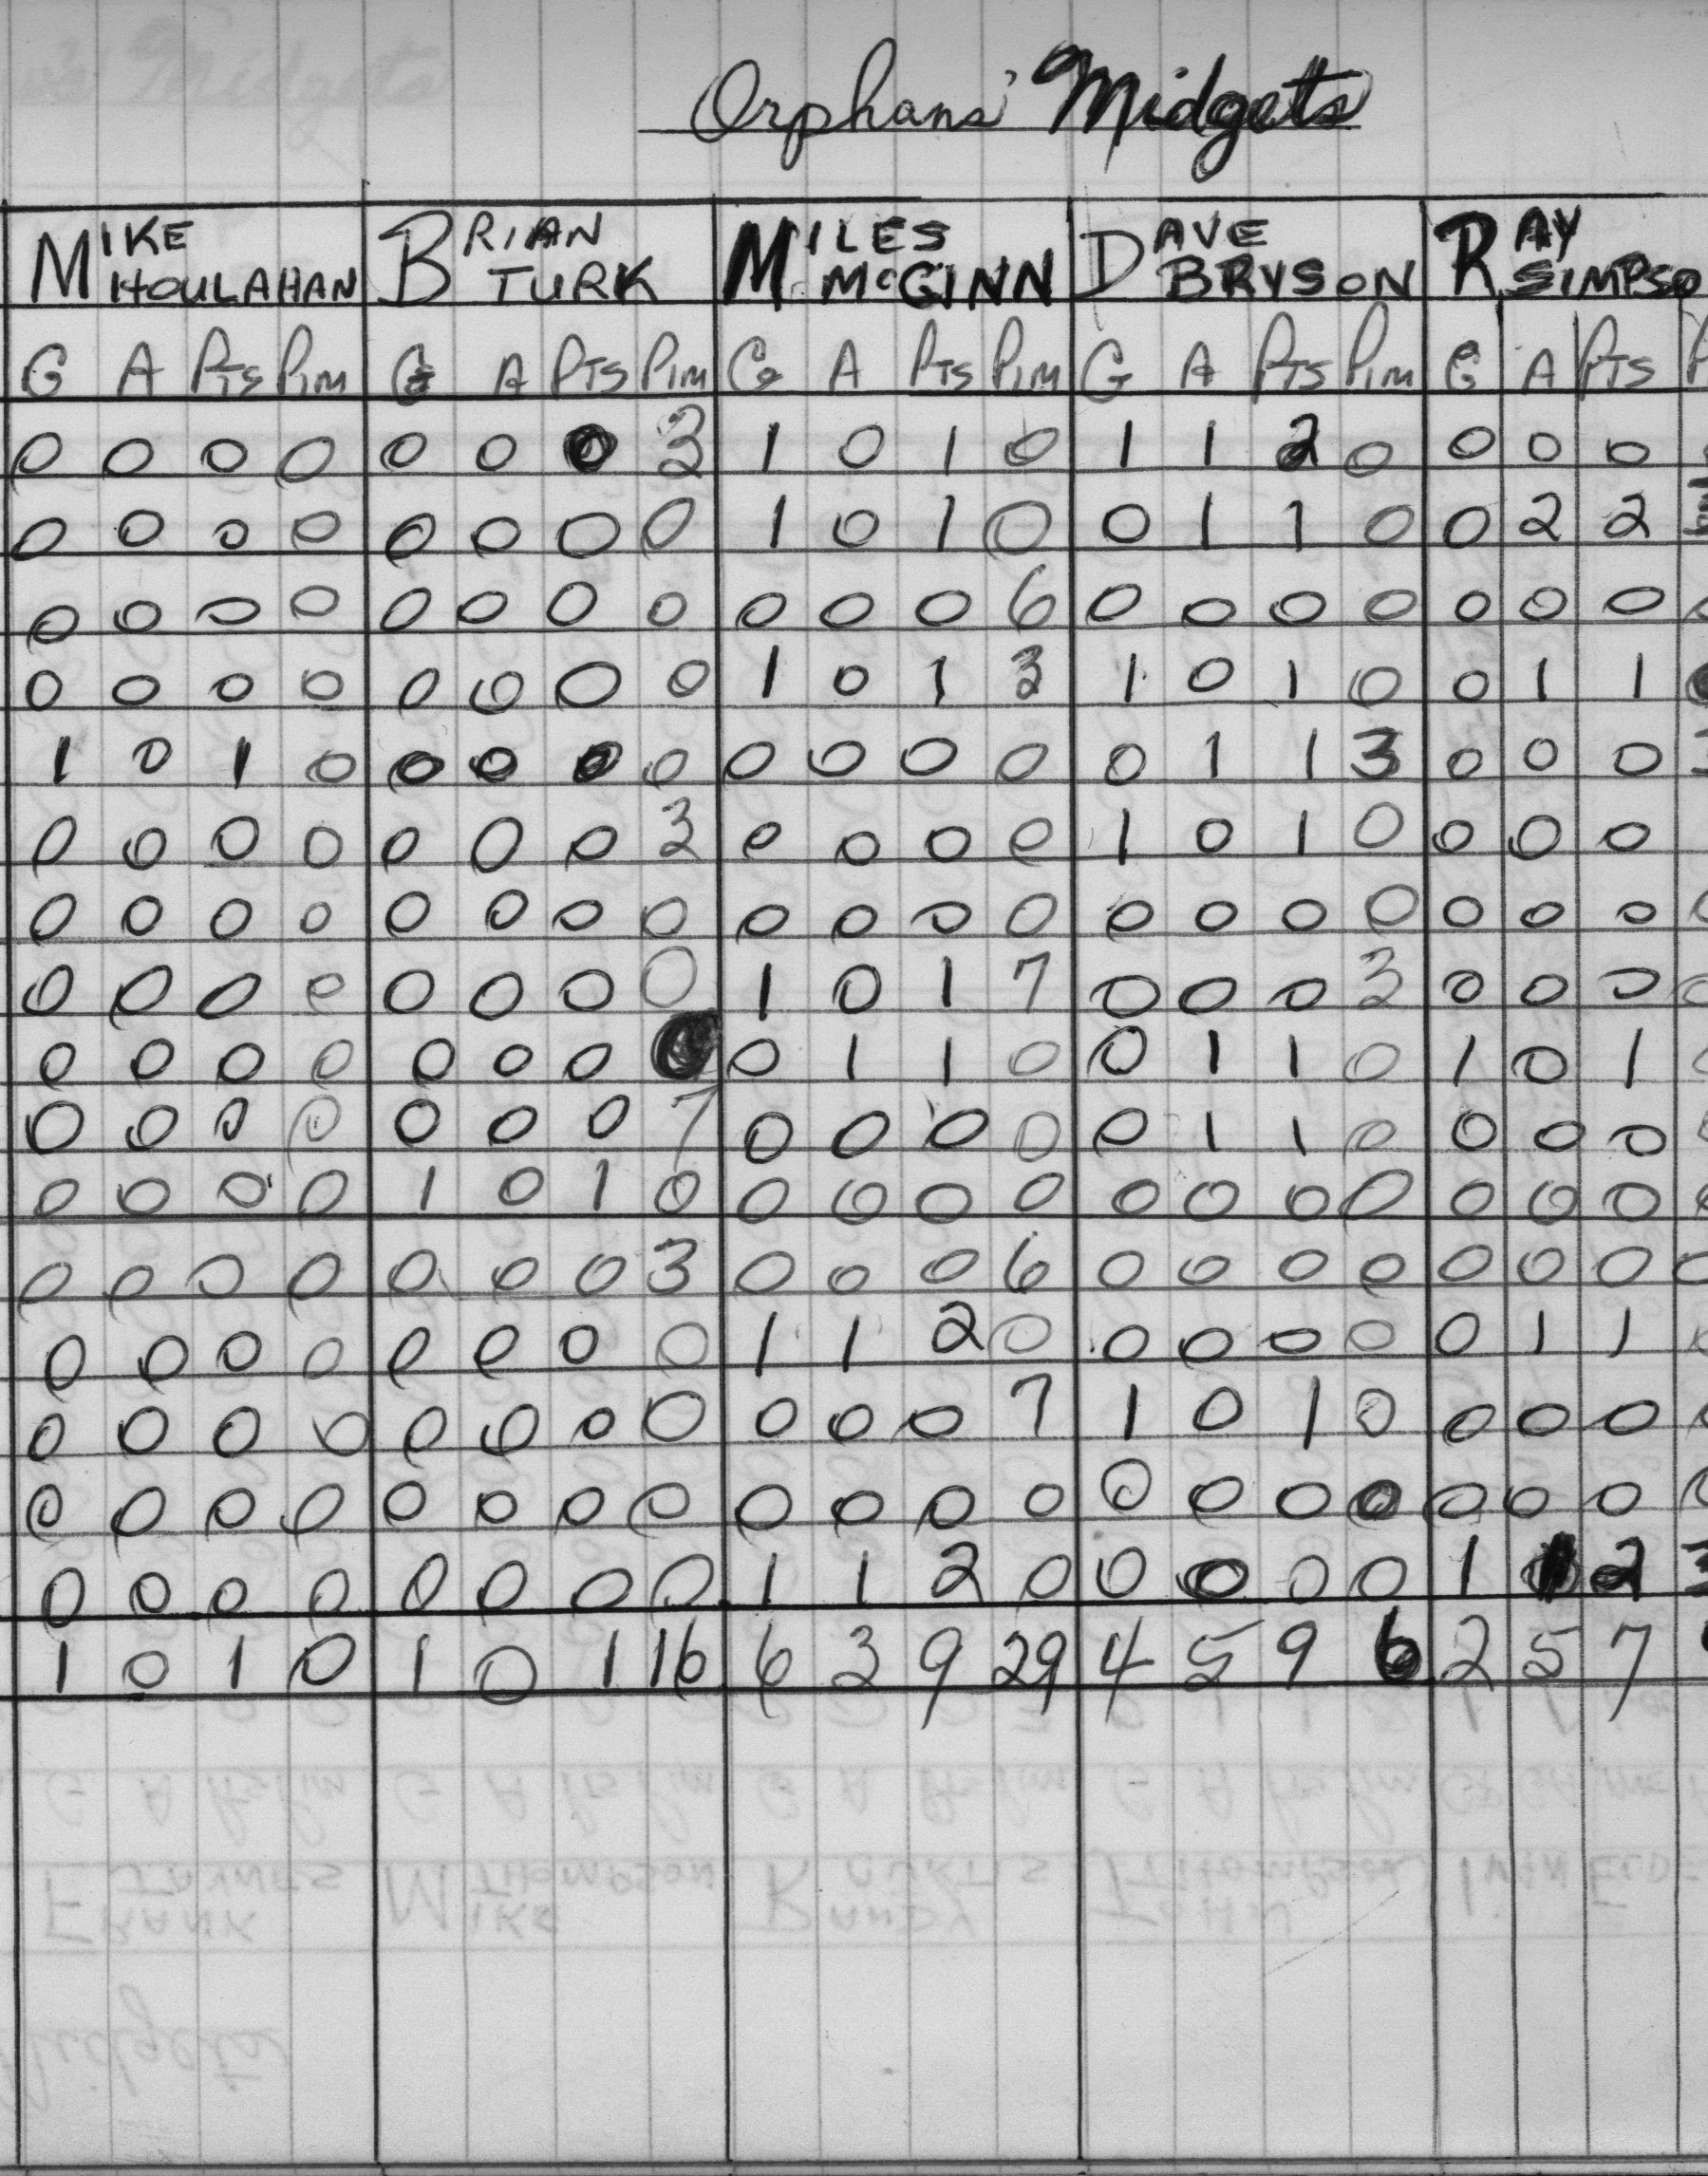 Orphans' Midgets
MIKE HOULAHAN BRIAN TURK MILES McGINN DAVE BRYSON RAY SIMPSO
G A PTS PIM G A PTS PIM G A PTS PIM G A PTS PIM G A PTS P
0 0 0 0 0 0 0 3 1 0 1 0 1 1 2 0 0 0 0
0 0 0 0 0 0 0 0 1 0 1 0 0 1 1 0 0 2 2
0 0 0 0 0 0 0 0 0 0 0 6 0 0 0 0 0 0 0
0 0 0 0 0 0 0 0 1 0 1 3 1 0 1 0 0 1 1
1 0 1 0 0 0 0 0 0 0 0 0 0 1 1 3 0 0 0 3
0 0 0 0 0 0 0 3 0 0 0 0 1 0 1 0 0 0 0
0 0 0 0 0 0 0 0 0 0 0 0 0 0 0 0 0 0 0 0
0 0 0 0 0 0 0 0 1 0 1 7 0 0 0 3 0 0 0 0
0 0 0 0 0 0 0 0 1 1 0 0 1 1 0 1 0 1 0
0 0 0 0 0 0 0 7 0 0 0 0 0 1 1 0 0 0 0 0
0 0 0 0 1 0 1 0 0 0 0 0 0 0 0 0 0 0 0 0
0 0 0 0 0 0 0 3 0 0 0 6 0 0 0 0 0 0 0 0
0 0 0 0 0 0 0 0 1 1 2 0 0 0 0 0 0 1 1 0
0 0 0 0 0 0 0 0 0 0 0 7 1 0 1 0 0 0 0 0
0 0 0 0 0 0 0 0 0 0 0 0 0 0 0 0 0 0 0 0
0 0 0 0 0 0 0 0 1 1 2 0 0 0 0 0 1 1 2 3
1 0 1 0 1 0 1 16 6 3 9 29 4 5 9 6 2 5 7